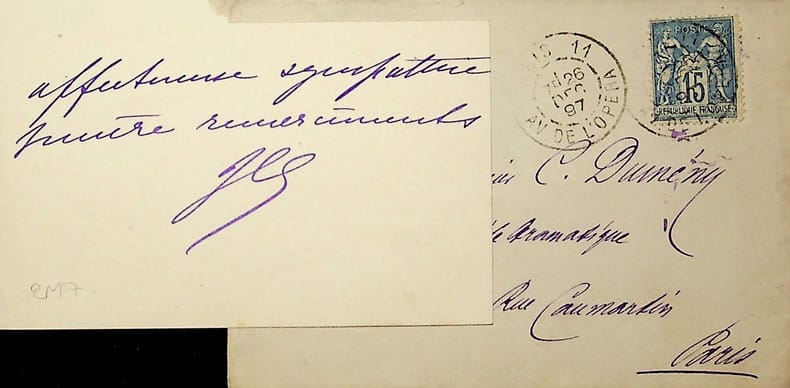 affectueuse sympathie
sincère remerciments
2M7.
PARIS 11
26
DEC
97
AV DE L'OPERA
POSTES
15
REPUBLIQUE FRANÇAISE
C. Dumény
Dramatique
Rue Caumartin
Paris